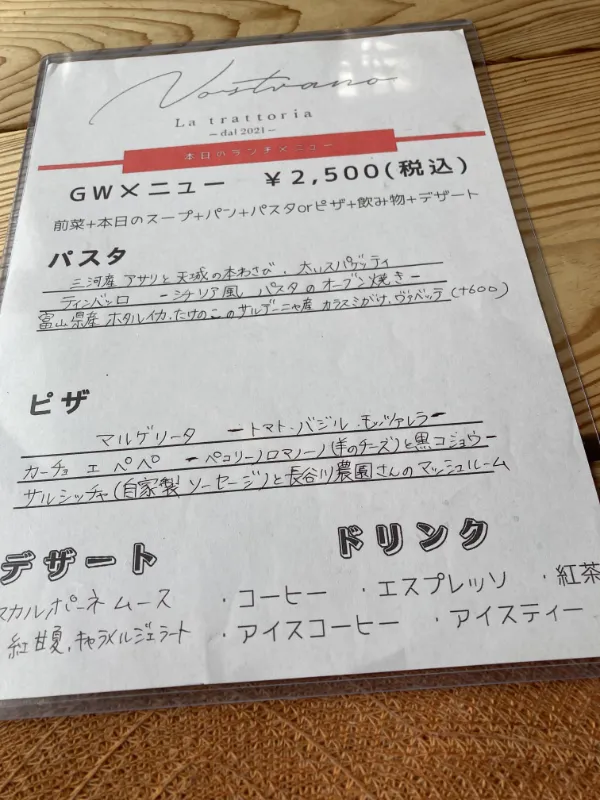 Nostrano
La trattoria
-dal 2021-
本日のランチメニュー
GWメニュー ￥2,500(税込)
前菜+本日のスープ+パン+パスタorピザ+飲み物+デザート
パスタ
三河産 アサリと天城の本わさび、太いスパゲッティ
ティンバッロ ーシチリア風 パスタのオーブン焼きー
富山県産 ホタルイカ、たけのこのサルデーニャ産 カラスミがけ、ヴァベッテ (+600)
ピザ
マルゲリータ ートマト・バジル・モッツァレラー
カーチョ エ ペペ ーペコリーノロマーノ(羊のチーズ)と黒コショウー
サルシッチャ(自家製 ソーセージ)と長谷川農園さんのマッシュルーム
デザート
マスカルポーネ ムース
紅甘夏、キャラメルジェラート
ドリンク
・コーヒー ・エスプレッソ ・紅茶
・アイスコーヒー ・アイスティー